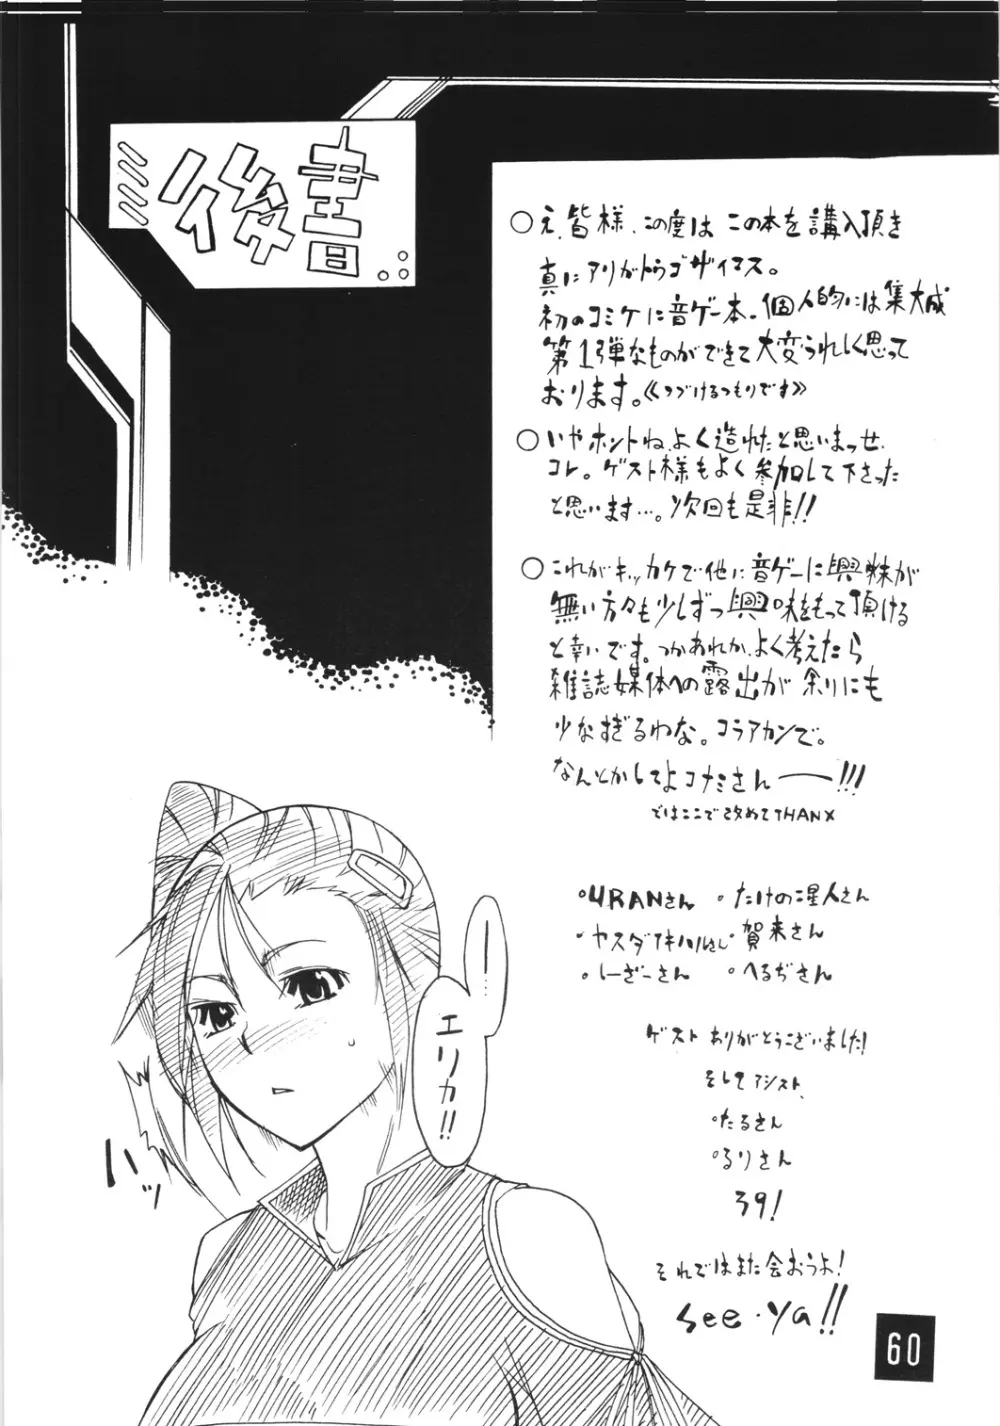 後書
○え、皆様、この度はこの本を講入頂き
真にアリがトウゴザイマス。
初のコミケに音ゲー本。個人的には集大成
第1弾なものができて大変うれしく思って
おります。《つづけるつもりです》
○いやホントね、よく造れたと思いまっせ、
コレ。ゲスト様もよく参加して下さった
と思います…。次回も是非!!
○これがキッカケで他に音ゲーに興味が
無い方々も少しずつ興味をもって頂ける
と幸いです。つかあれか、よく考えたら
雑誌媒体への露出が余りにも
少なすぎるわな。コラアカンで。
なんとかしてよコナミさんー!!!
ではここで改めてTHANX
・URANさん ・たけの星人さん
・ヤスダアキハルさん ・賀来さん
・しーざーさん ・へるぢさん
ゲストありがとうございました!
そしてアシスト、
・たるさん
・るりさん
39!
それではまた会おうよ!
see・ya!!
ー
エリカ!!
ハッ
60